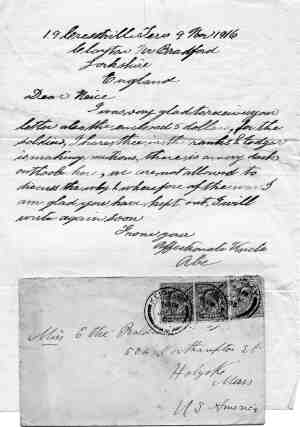 19 Crestville Terr 9 Nov 1916
Clayton Nr Bradford
Yorkshire
England
Dear Neice
I was very glad to receive your
letter also the enclosed 5 dollars, for the
soldiers, I
is making, there is a very
outlook here, we are not allowed to
discuss the why & wherefore of the war I
am glad you have kept out, I will
write again soon
From your
Affectionate Uncle
Abe
Miss
504 Northampton St
Holyoke
Mass
U S America